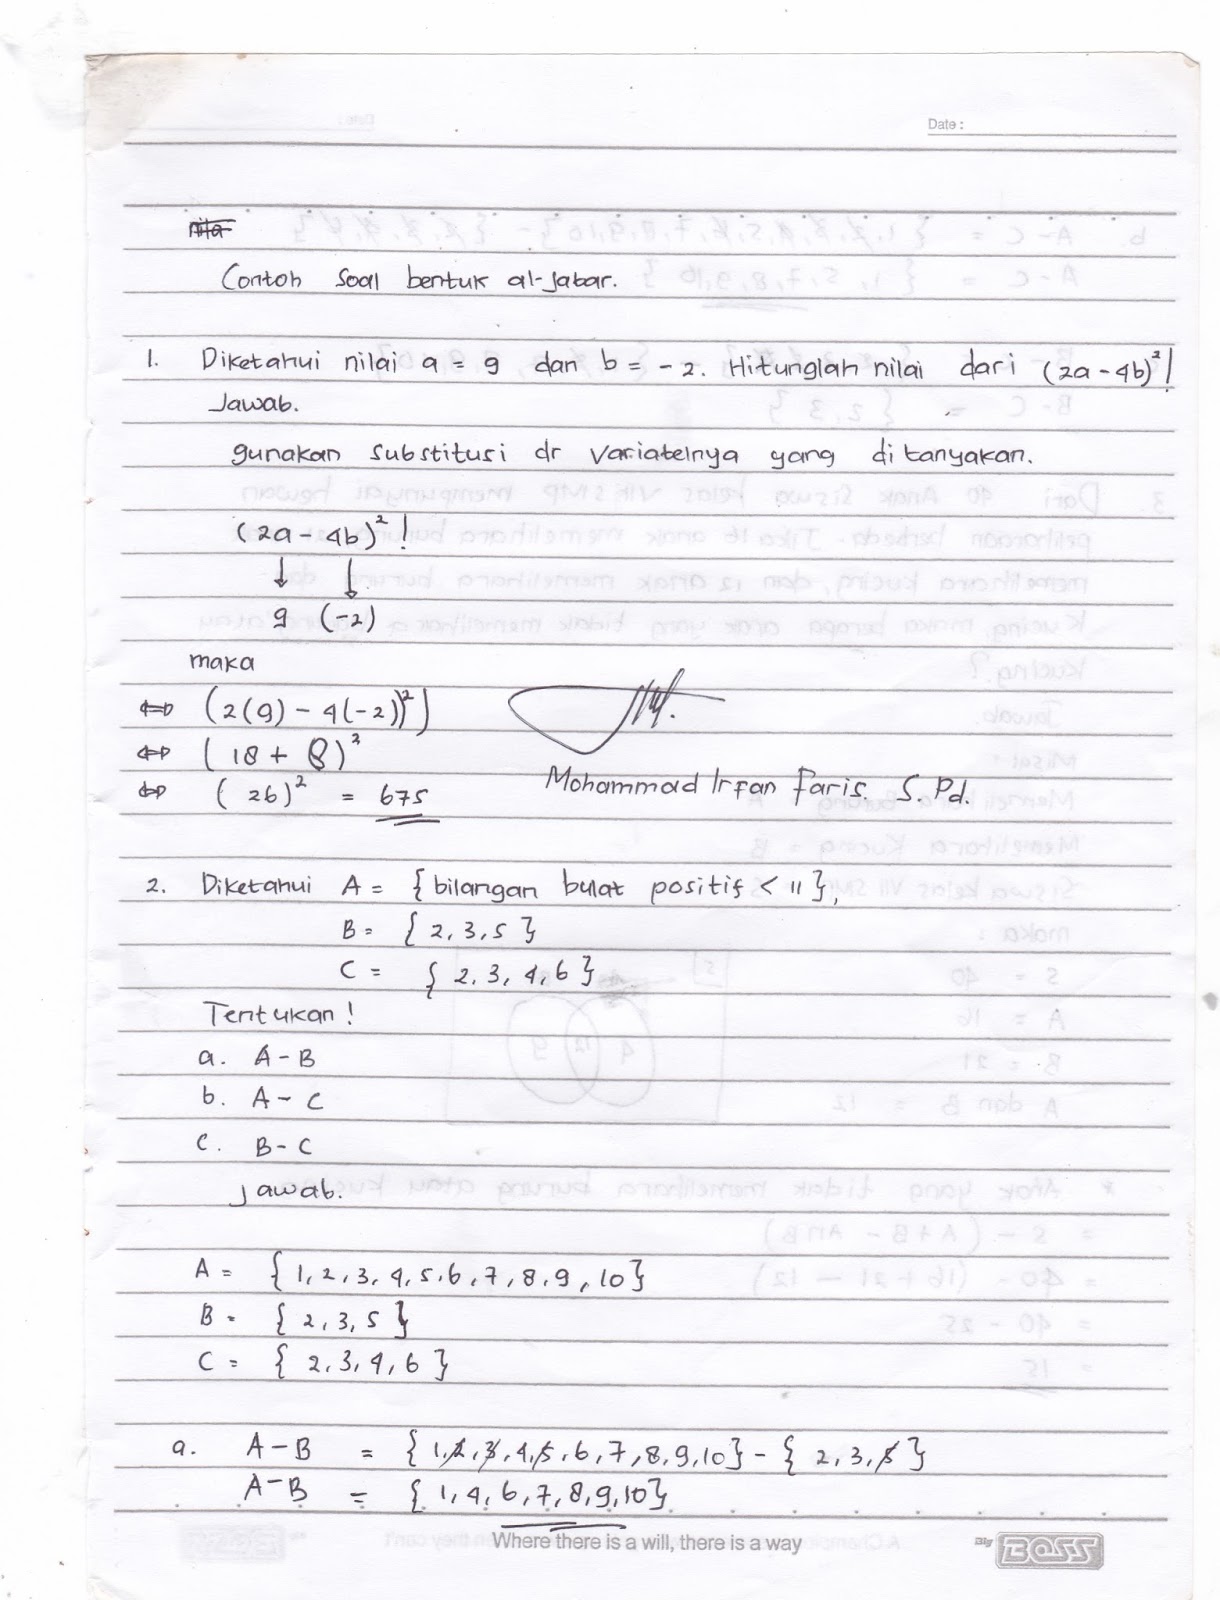 Date :
nita
Contoh soal bentuk al-Jabar.
1. Diketahui nilai a = 9 dan b = -2. Hitunglah nilai dari (2a - 4b)²!
Jawab.
gunakan substitusi dr variabelnya yang ditanyakan.
(2a - 4b)²!
↓ ↓
9 (-2)
maka
⇔ (2(9) - 4(-2))²)
⇔ (18 + 8)²
⇔ (26)² = 675
Mohammad Irfan Faris, S.Pd.
2. Diketahui A = {bilangan bulat positif < 11},
B = {2, 3, 5}
C = {2, 3, 4, 6}
Tentukan!
a. A - B
b. A - C
c. B - C
Jawab.
A = {1, 2, 3, 4, 5, 6, 7, 8, 9, 10}
B = {2, 3, 5}
C = {2, 3, 4, 6}
a. A - B = {1, 2, 3, 4, 5, 6, 7, 8, 9, 10} - {2, 3, 5}
A - B = {1, 4, 6, 7, 8, 9, 10}
Where there is a will, there is a way
Big BOSS